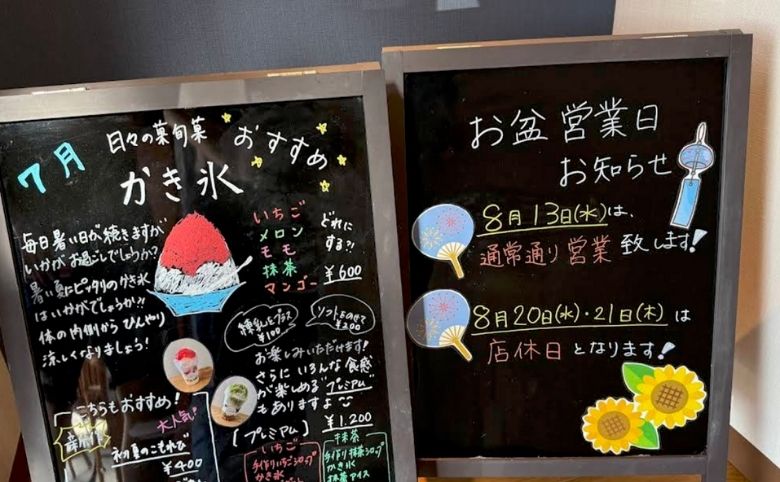 7月
日々の菓旬菓
おすすめ
かき氷
毎日暑い日が続きますが
いかがお過ごしでしょうか?
暑い夏にピッタリのかき氷
はいかがでしょうか?!
体の内側からひんやり
涼しくなりましょう!
いちご
メロン
モモ
抹茶
マンゴー
どれに
する?!
¥600
練乳をプラス
¥100
ソフトをのせて
¥200
お楽しみいただけます!
さらにいろんな食感
が楽しめるプレミアム
もありますよ
¥1,200
[プレミアム]
いちご
手作りいちごシロップ
かき氷
抹茶
手作り抹茶シロップ
かき氷
抹茶アイス
こちらもおすすめ!
大人気!
新作
初夏のこもれび
¥400
お盆営業日
お知らせ
8月13日(水)は、
通常通り営業致します!
8月20日(水)・21日(木)は
店休日となります!